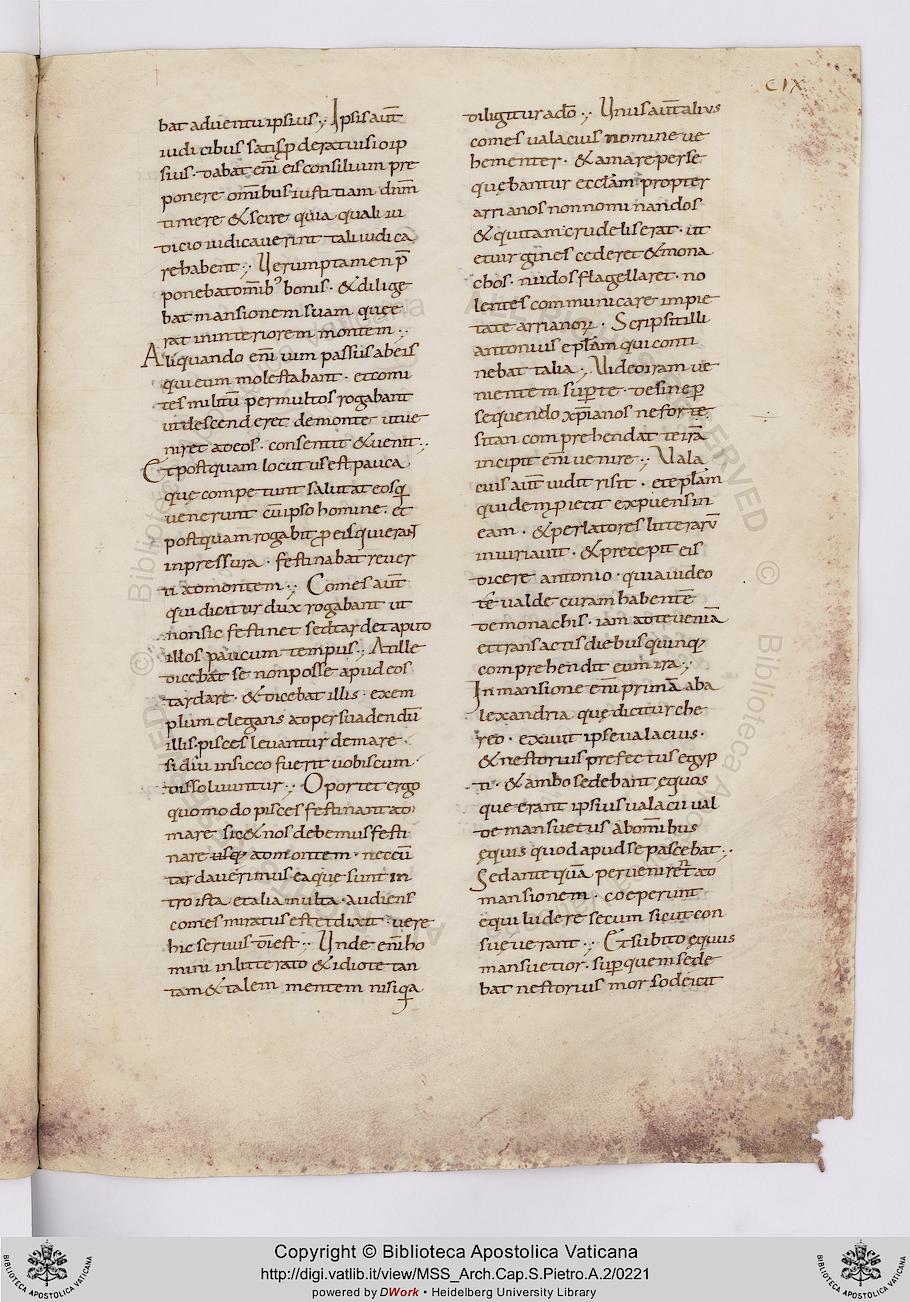 CIX
bat aduentu ipsius ·, Ipsis aut̅
iudicibus satis p̱deratuisioip
sius · dabat eni̅ eis consilium pre
ponere om̅ibus iustitiam dn̅m
timere & scire quia quali iu
dicio iudicauerint tali iudica
rehabent ·, Uerumptamen p̅
ponebat om̅ib; bonis · & dilige
bat mansionem suam quę e
rat in interiorem montem ·,
Aliquando eni̅ uim passus ab eis
qui eum molestabant · et comi
tes militu̅ per multos rogabant
ut descenderet de monte ut ue
niret ad eos · consentit & uenit ·,
Et postquam locutus est pauca
que competunt salutat eosq;
uenerunt cu̅ ipso homine · et
postquam rogabit p̱ eis qui erant
in pressura · festinabat reuer
ti ad montem ·, Comes aut̅
qui dicitur dux rogabant ut
non sic festinet sed tardet aput
illos paucum tempus ·, At ille
dicebat se non posse apud eos
tardare · & dicebat illis · exem
plum elegans ad persuadendu̅
illis · pisces leuantur de mare ·
si diu in sicco fuerit uobiscum
dissoluuntur ·, Oportet ergo
quomodo pisces festinant ad
mare sic & nos debemus festi
nare usq; ad montem · ne cu̅
tardauerimus ea que sunt in
tro ista et alia multa · audiens
comes miratus est et dixit · uere
hic seruus di̅ est ·, Unde eni̅ ho
mini inlitterato & idiote tan
tam & talem mentem nisi q̱a
diligitur a do̅ ·, Unus aut̅ alius
comes ualacius nomine ue
hementer · & amare perse
quebantur eccla̅m propter
arrianos non nominandos
& qui tam crudelis erat · ut
et uirgines cederet & mona
chos · nudos flagellaret · no
lentes communicare impie
tate arrianoꝝ · Scripsit illi
antonius epl̅am qui conti
nebat talia ·, Uideo iram ue
nientem sup̱ te · desine p̱
sequendo xp̅ianos ne forte
sitan comprehendat te ira̅
incipit eni̅ uenire ·, Uala
cius aut̅ uidit risit · et epl̅am
quidem piecit expuens in
eam · & perlatores litteraru̅
iniuriauit · & precepit eis
dicere antonio · quia uideo
te̅ ualde curam habente̅
de monachis · iam ad te uenia̅
et transactis diebus quinq;
comprehendit eum ira ·,
In mansione eni̅ prima̅ ab a
lexandria quę dicitur che
reo · exiuit ipse ualacius ·
& nestorius prefectus egyp
ti · & ambo sedebant ęquos
que erant ipsius ualacii ual
de mansuetus ab om̅ibus
ęquis quod apud se pascebat ·,
Sed ante qua̅ peruenirent ad
mansionem · coeperunt
equi ludere secum sicut con
sueuerant ·, Et subito ęquus
mansuetior · sup̱ quem sede
bat nestorius morso deicit
Copyright © Biblioteca Apostolica Vaticana
http://digi.vatlib.it/view/MSS_Arch.Cap.S.Pietro.A.2/0221
powered by DWork • Heidelberg University Library